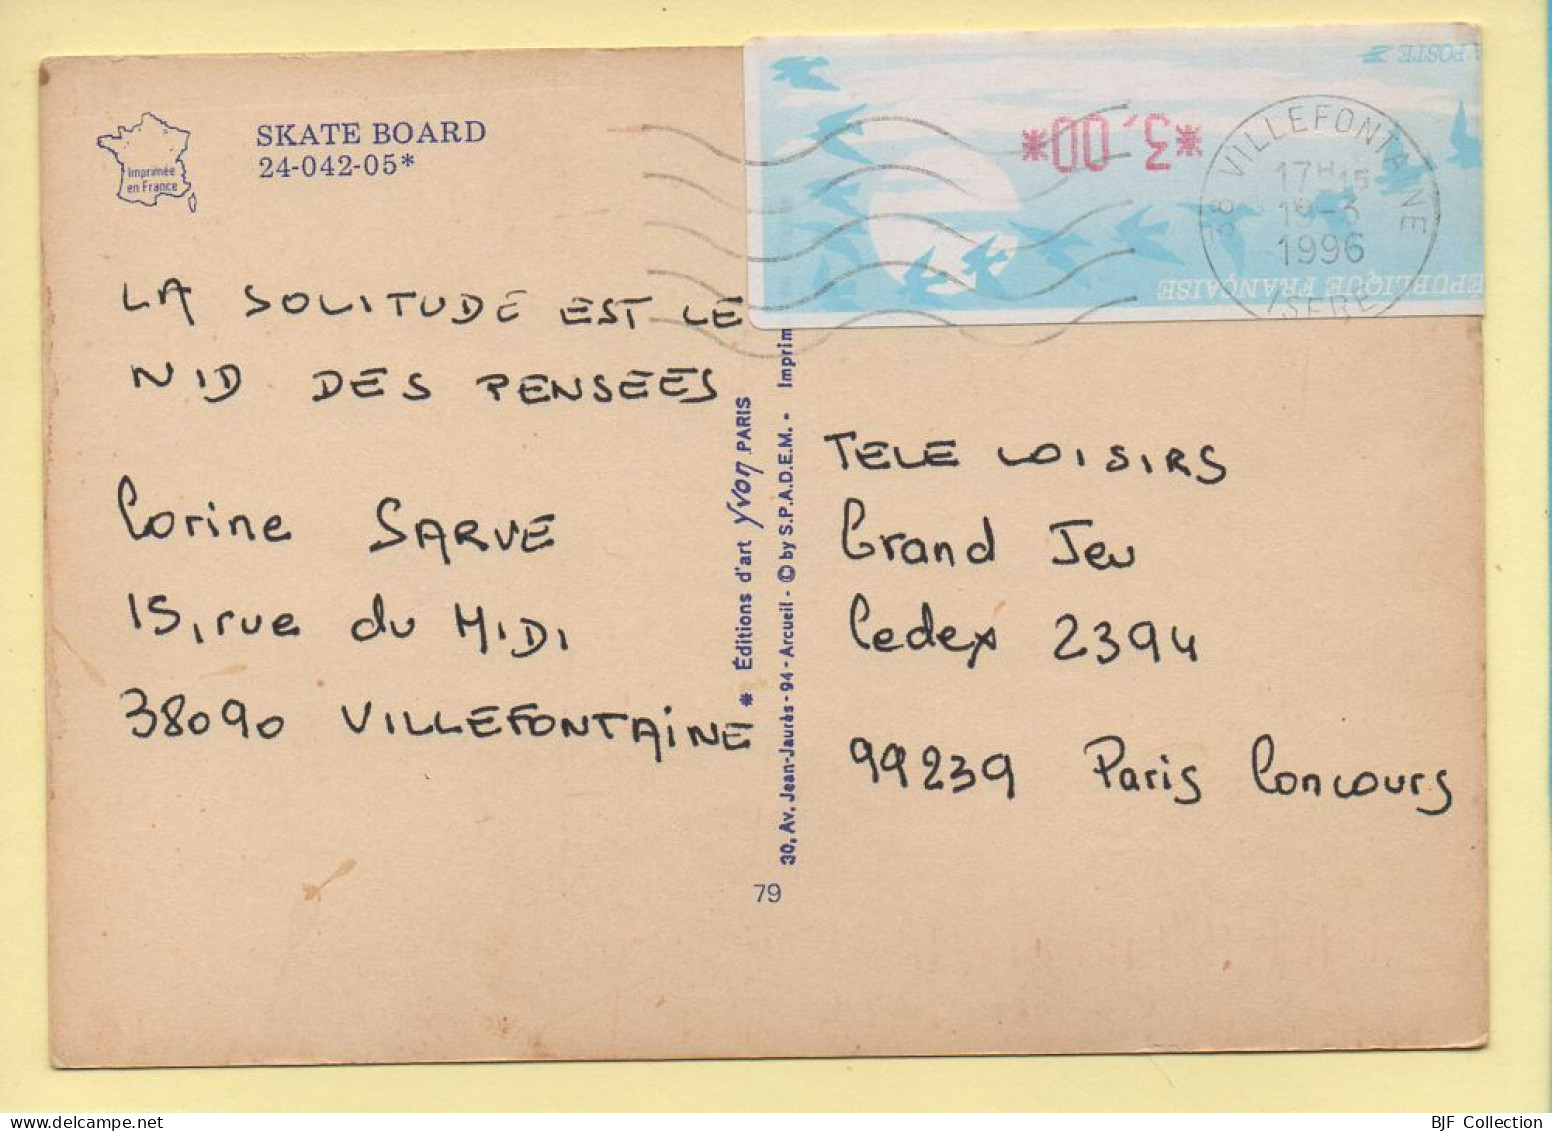 SKATE BOARD
24-042-05*
Imprimée
en France
LA SOLITUDE EST LE
NID DES PENSEES
Corine SARVE
15, rue du MIDI
38090 VILLEFONTAINE
* Éditions d'art Yvon PARIS
30, Av. Jean-Jaurès - 94 - Arcueil - © by S.P.A.D.E.M. - Imprim
79
*3,00*
REPUBLIQUE FRANÇAISE
LA POSTE
38 VILLEFONTAINE
17H15
-3
1996
ISERE
TELE LOISIRS
Grand Jeu
Cedex 2394
99239 Paris Concours
BJF Collection